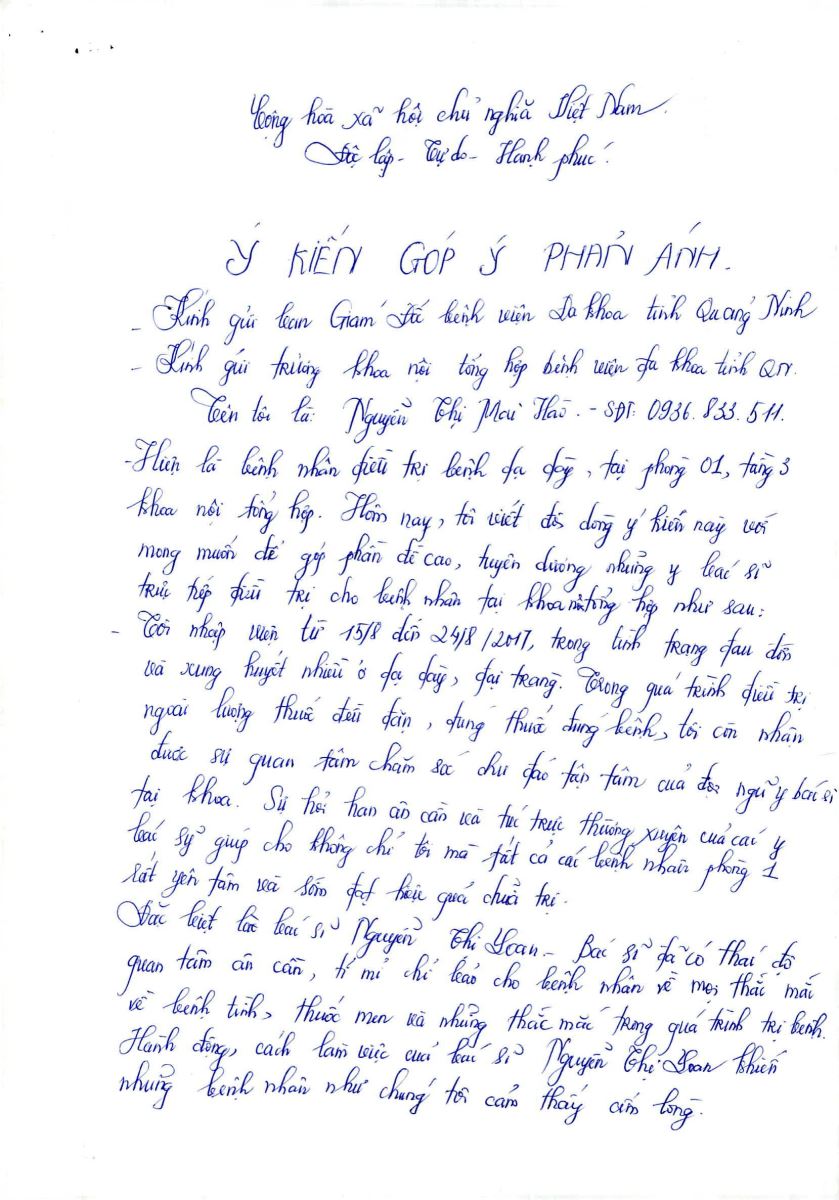 Cộng hòa xã hội chủ nghĩa Việt Nam.
Độc lập - Tự do - Hạnh phúc.
Ý KIẾN GÓP Ý PHẢN ÁNH.
- Kính gửi ban Giám đốc bệnh viện Đa khoa tỉnh Quảng Ninh
- Kính gửi trưởng khoa nội tổng hợp bệnh viện đa khoa tỉnh QN.
Tên tôi là: Nguyễn Thị Mai Hảo. - SĐT: 0936.833.511.
- Hiện là bệnh nhân điều trị bệnh dạ dày, tại phòng 01, tầng 3
khoa nội tổng hợp. Hôm nay, tôi viết đôi dòng ý kiến này với
mong muốn để góp phần đề cao, tuyên dương những y bác sĩ
trực tiếp điều trị cho bệnh nhân tại khoa nội tổng hợp như sau:
- Tôi nhập viện từ 15/8 đến 24/8/2017, trong tình trạng đau đớn
và xung huyết nhiều ở dạ dày, đại tràng. Trong quá trình điều trị
ngoài lượng thuốc đều đặn, đúng thuốc đúng bệnh, tôi còn nhận
được sự quan tâm chăm sóc chu đáo tận tâm của đội ngũ y bác sĩ
tại khoa. Sự hỏi han ân cần và túc trực thường xuyên của các y
bác sỹ giúp cho không chỉ tôi mà tất cả các bệnh nhân phòng 1
rất yên tâm và sớm đạt hiệu quả chữa trị.
Đặc biệt là bác sĩ Nguyễn Thị Loan - Bác sĩ đã có thái độ
quan tâm ân cần, tỉ mỉ chỉ bảo cho bệnh nhân về mọi thắc mắc
về bệnh tình, thuốc men và những thắc mắc trong quá trình trị bệnh.
Hành động, cách làm việc của bác sĩ Nguyễn Thị Loan khiến
những bệnh nhân như chúng tôi cảm thấy ấm lòng.